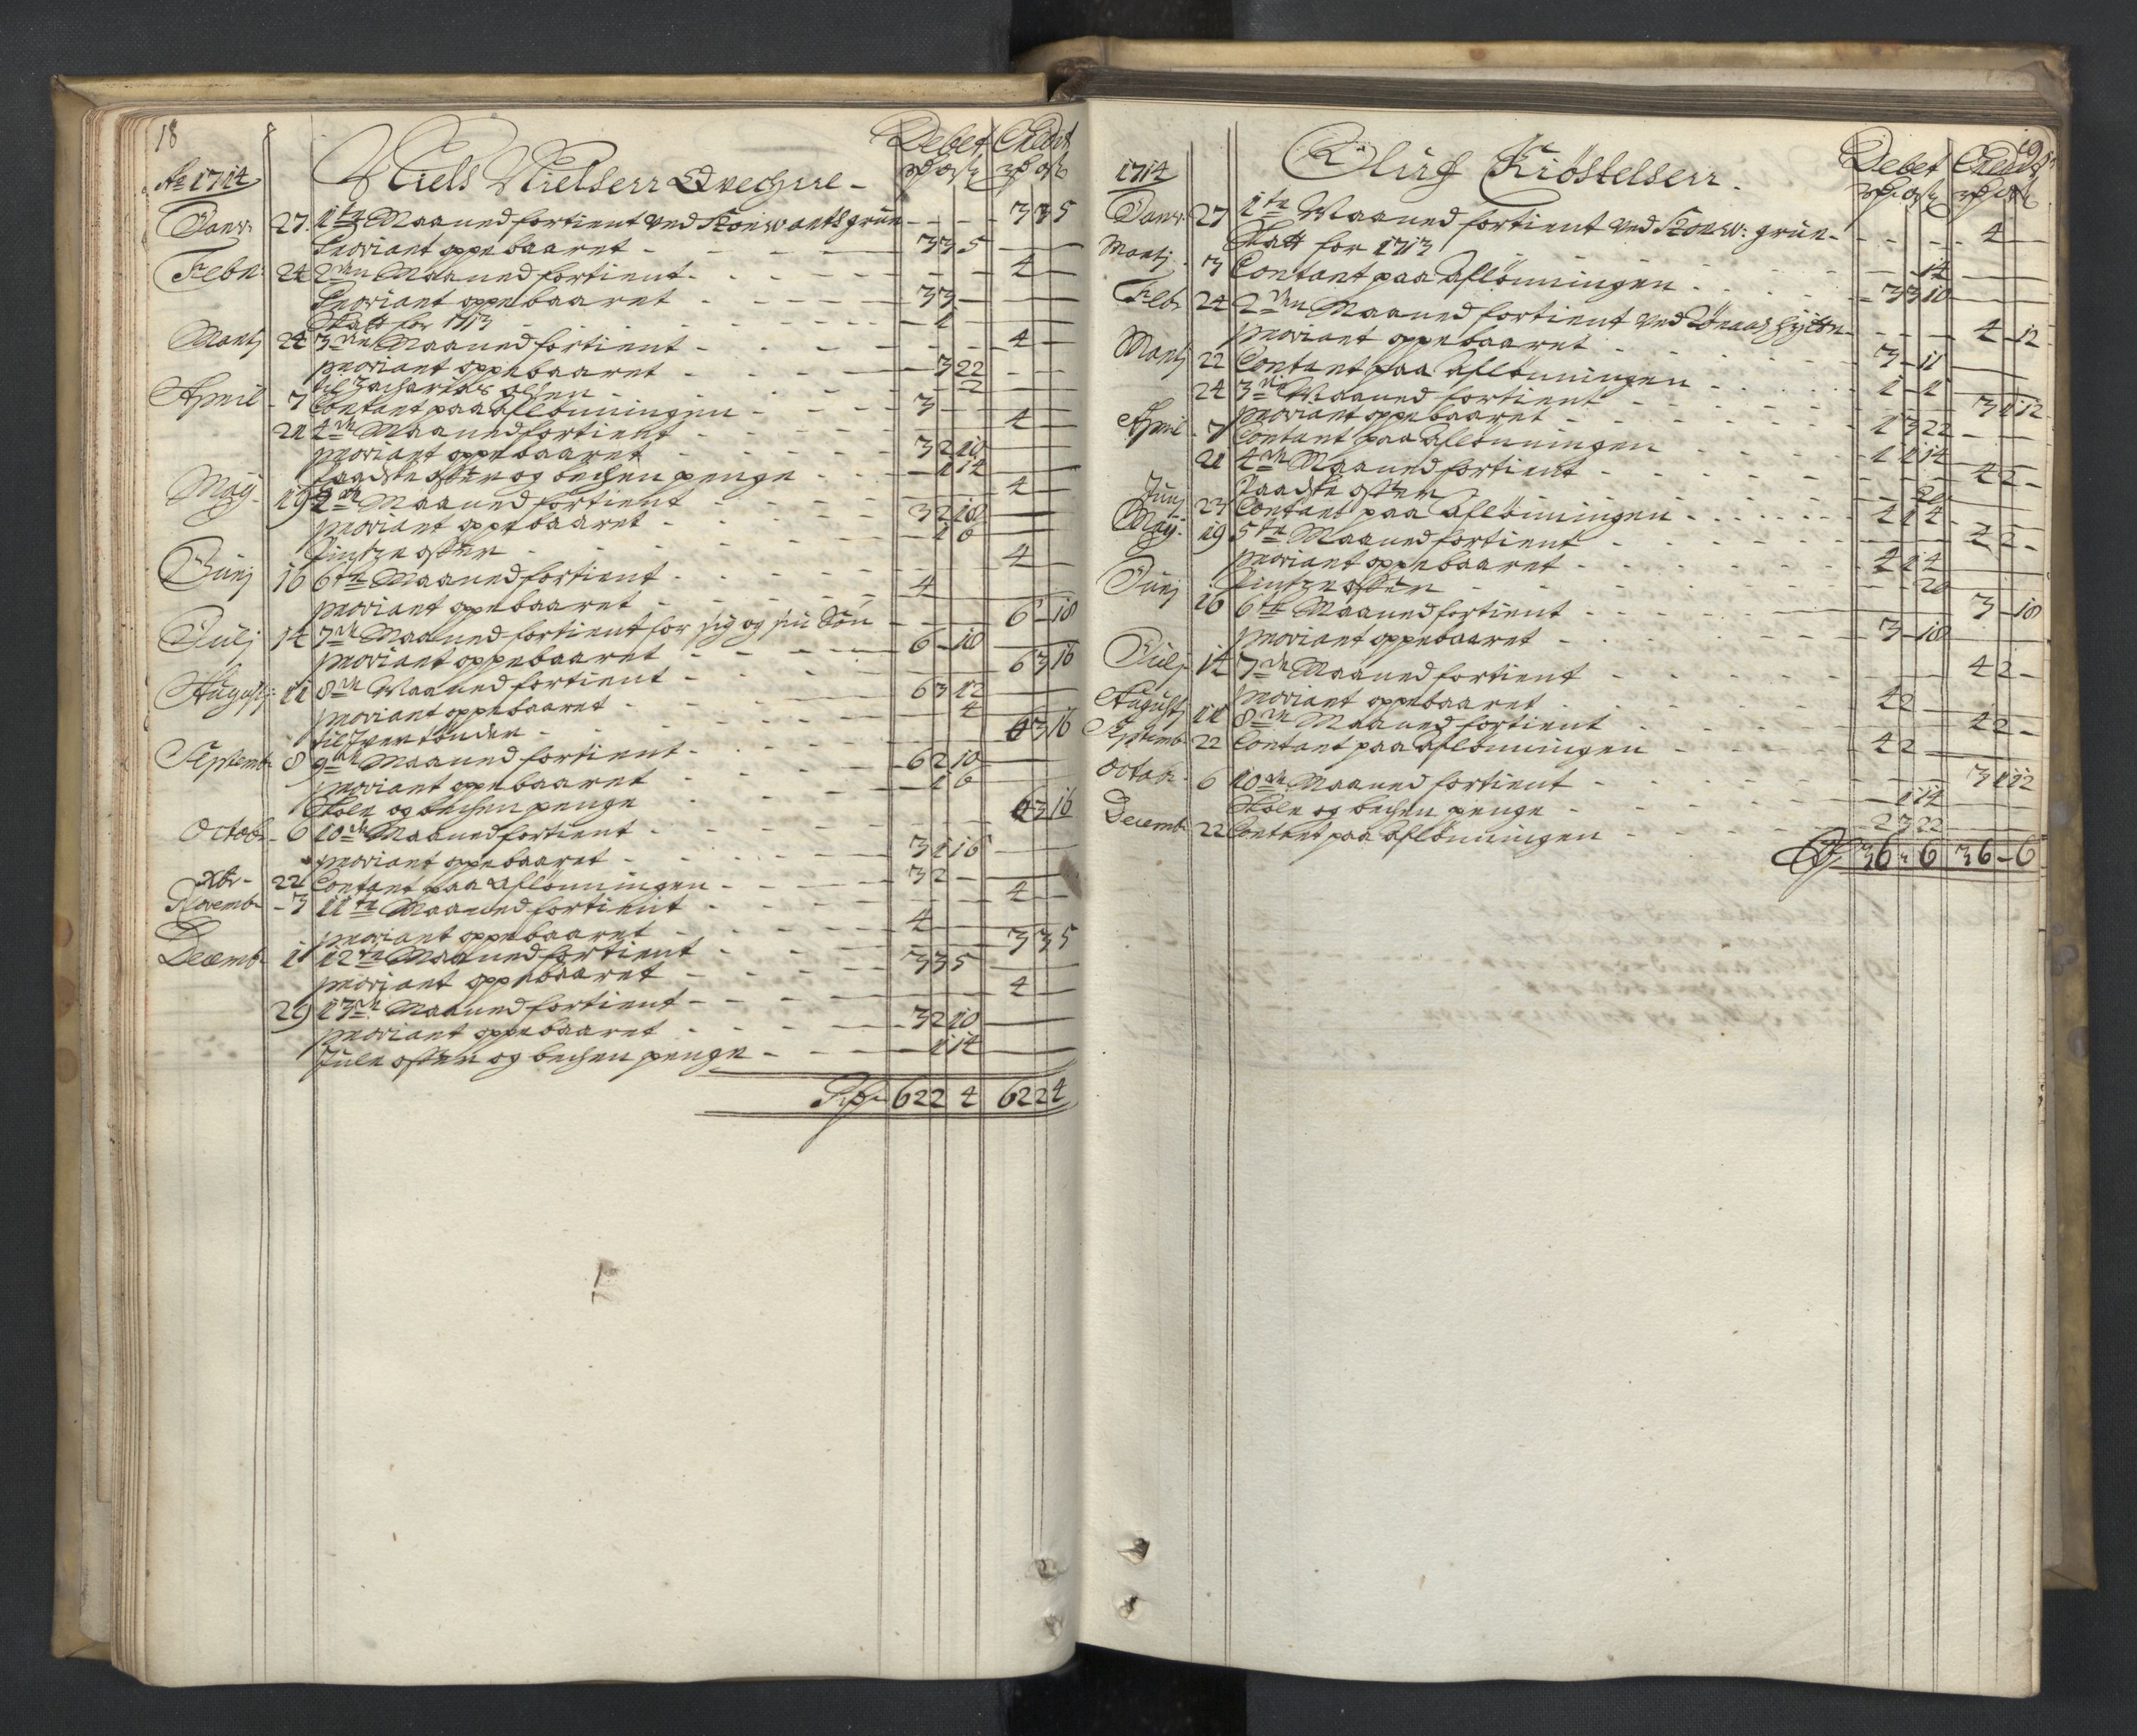 18
Ao 1714 Niels Nielsen Qvechne - Debet Credit
Janr: 27. 1te Maaned fortient ved Kronwants grün - - - 3 3 5
Proviant oppebaaret - - - 3 3 5
Febr: 24 2den Maaned fortient - - - 4 - -
Proviant oppebaaret - - - 3 3 -
Skatt for 1713 - - - 1 -
Martj 24 3die Maaned fortient - - - 4 - -
proviant oppebaaret - - - 3 22
til Zacharias Olsen - - - 2
April - 7 Contant paa Aflönningen - - - 3 - -
21 4de Maaned fortient - - - 4 - -
proviant oppebaaret - - - 3 2 10
Paadske offer og bechen penge - - - 1 14
Maÿ - 19 5te Maaned fortient - - - 4 - -
proviant oppebaaret - - - 3 2 18
Pintze offer - - - 1 6
Junj 16 6te Maaned fortient - - - 4 - -
proviant oppebaaret - - - 4 - -
Julj 14 7de Maaned fortient for sig og sin Sön - - - 6 - 18
proviant oppebaaret - - - 6 - 18
Augustj: 11 8de Maaned fortient - - - 6 3 16
proviant oppebaaret - - - 6 3 12
til Iver Sönder - - - 4
Septemb: 8 9de Maaned fortient - - - 6 3 16
proviant oppebaaret - - - 6 2 10
Skole og bechen penge - - - 1 6
Octob: 6 10de Maaned fortient - - - 6 3 16
proviant oppebaaret - - - 3 1 16
Xbr - 22 Contant paa Aflönningen - - - 3 2 -
Novemb - 3 11te Maaned fortient - - - 4 - -
proviant oppebaaret - - - 4 - -
Decemb 1 12te Maaned fortient - - - 3 3 5
proviant oppebaaret - - - 3 3 5
29 13de Maaned fortient - - - 4 - -
proviant oppebaaret - - - 3 2 10
Jule offer og bechen penge - - - 1 14
62 2 4 62 2 4
19
1714 Oluf Kiöstelsen. Debet Credit
Janr: 27 1te Maaned fortient ved Kronw: grün - - - 4 - -
Skatt for 1713 - - - 14
Martj - 3 Contant paa Aflönningen - - - 3 3 10
Febr 24 2den Maaned fortient ved Jonas hÿtten - - - 4 - 12
proviant oppebaaret - - - 3 - 11
Martj 22 Contant paa Aflönningen - - - 1 - 1
24 3die Maaned fortient - - - 3 1 12
proviant oppebaaret - - - 1 3 22
April - 7 Contant paa Aflönningen - - - 1 1 14
21 4de Maaned fortient - - - 4 2 -
Paadske offer - - - 20
Junj 23 Contant paa Aflönningen - - - 4 1 4
Maÿ: 19 5te Maaned fortient - - - 4 2 -
proviant oppebaaret - - - 4 1 4
Pintze offer - - - 20
Junj 16 6te Maaned fortient - - - 3 - 18
proviant oppebaaret - - - 3 - 18
Julj 14 7de Maaned fortient - - - 4 2 -
proviant oppebaaret - - - 4 2 -
Augustj 11 8de Maaned fortient - - - 4 2 -
Septemb: 22 Contant paa Aflönningen - - - 4 2 -
Octobr - 6 10de Maaned fortient - - - 3 1 12
Skole og bechen penge - - - 1 14
Decemb 22 Contant paa Aflönningen - - - 2 3 22
36 - 6 36 - 6